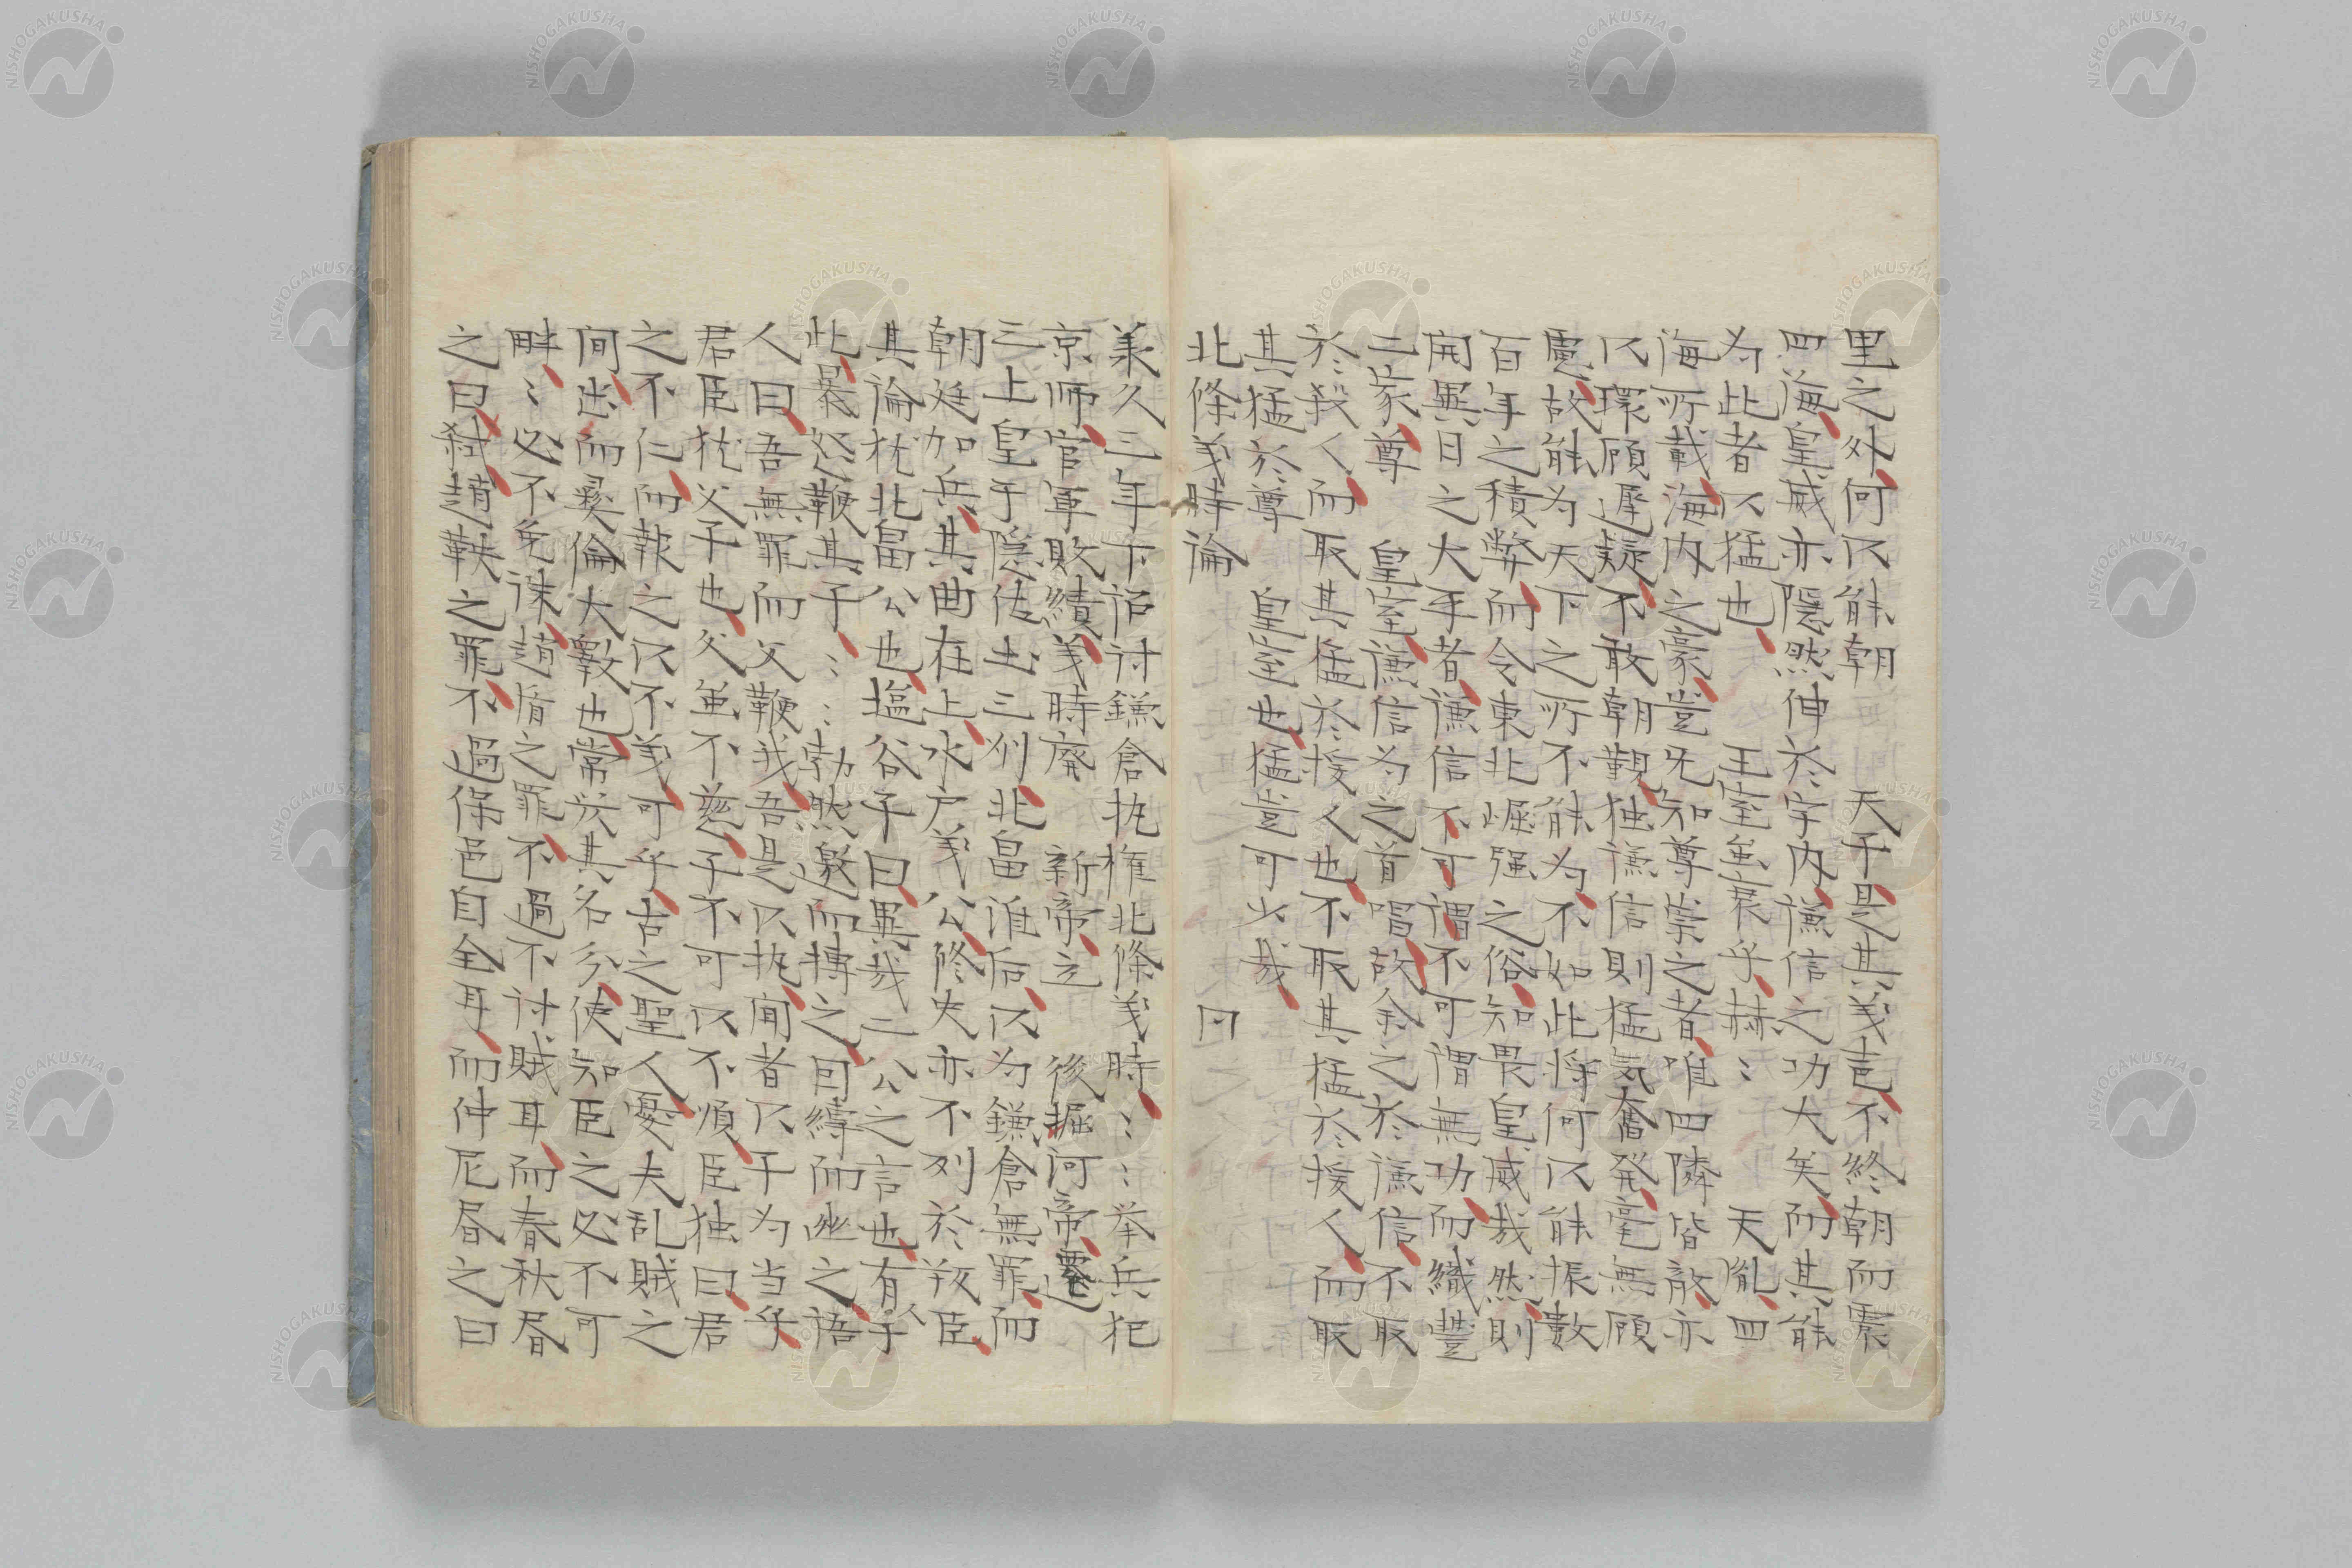 里之外何以能朝　天子是其義声不終朝而震
四海皇威亦隠然伸於宇内謙信之功大矣而其能
为此者以猛也　王室虽衰乎赫〻　天胤四
海所載海内之豪豈无知尊崇之者唯四隣皆敵亦
以環顧遅疑不敢朝覲独謙信則猛気奮発毫無顧
慮故能为天下之所不能为不如此将何以能振数
百年之積弊而令東北崛强之俗知畏皇威哉然則
開異日之大手者謙信不可謂不可謂無功而織豊
二家尊　皇室謙信为之首唱故余之於謙信不取
於殺人而取其猛於援人也不取其猛於援人而取
其猛於尊　皇室也猛豈可少哉
北條義時論　　　　　　　　　　同
美久三年下詔討鎌倉执権北條義時〻〻挙兵犯
京师官軍敗績義時廃　新帝立　後堀河帝遷
三上皇于隠佐土三州北畠准后以为鎌倉無罪而
朝廷加兵其曲在上水户義公修史亦不列於叛臣
其論猶北畠公也塩谷子曰異哉二公之言也有人于
此暴怒鞭其子〻〻勃然邀而摶之囙縛而幽之语
人曰吾無罪而父鞭我吾是以执聞者以子为当乎
君臣猶父子也父虽不慈子不可以不順臣独曰君
之不仁而報之以不義可乎古之聖人憂夫乱賊之
间出而彝倫大斁也常於其名分使知臣之必不可
畔〻必不免誅趙盾之罪不過不討賊耳而春秋書
之曰弑趙鞅之罪不過保邑自全耳而仲尼書之曰